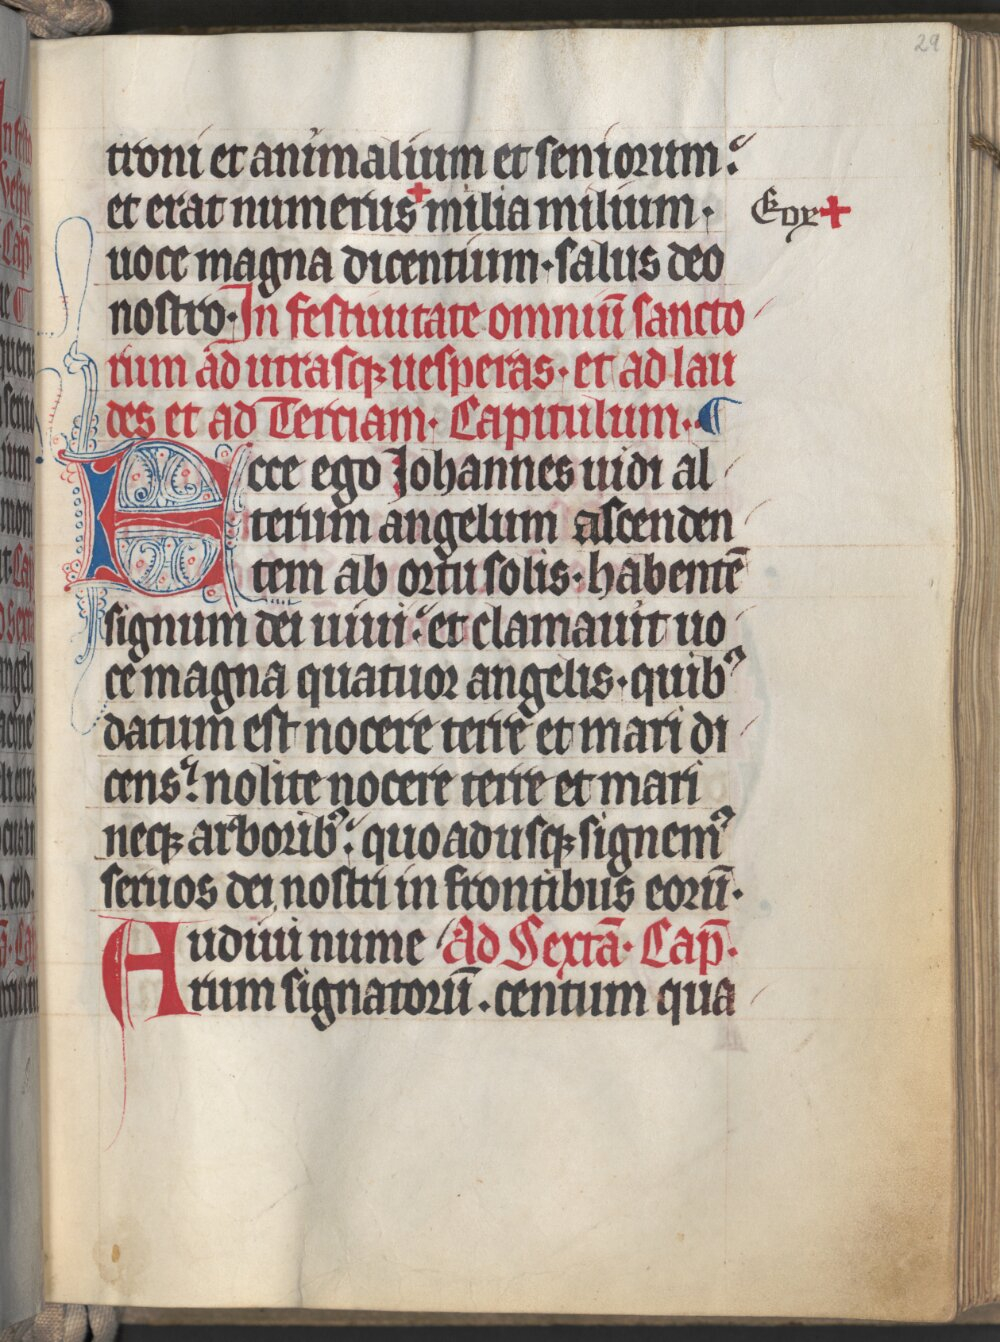 29
troni et animalium et seniorum:
et erat numerus + milia milium · Eoꝝ +
uoce magna dicentium · salus deo
nostro · In festiuitate omniū sancto
rum ad utrasqꝫ uesperas · et ad lau
des et ad Terciam · Capitulum · ¶
Ecce ego Johannes uidi al
terum angelum ascenden
tem ab ortu solis · habentē
signum dei uiui : et clamauit uo
ce magna quatuor angelis · quibꝰ
datum est nocere terre et mari di
cens : nolite nocere terre et mari
neqꝫ arboribꝰ : quoadusqꝫ signemꝰ
seruos dei nostri in frontibus eorū ·
Audiui nume Ad Sextā · Cap̄ ·
rum signatorū · centum qua